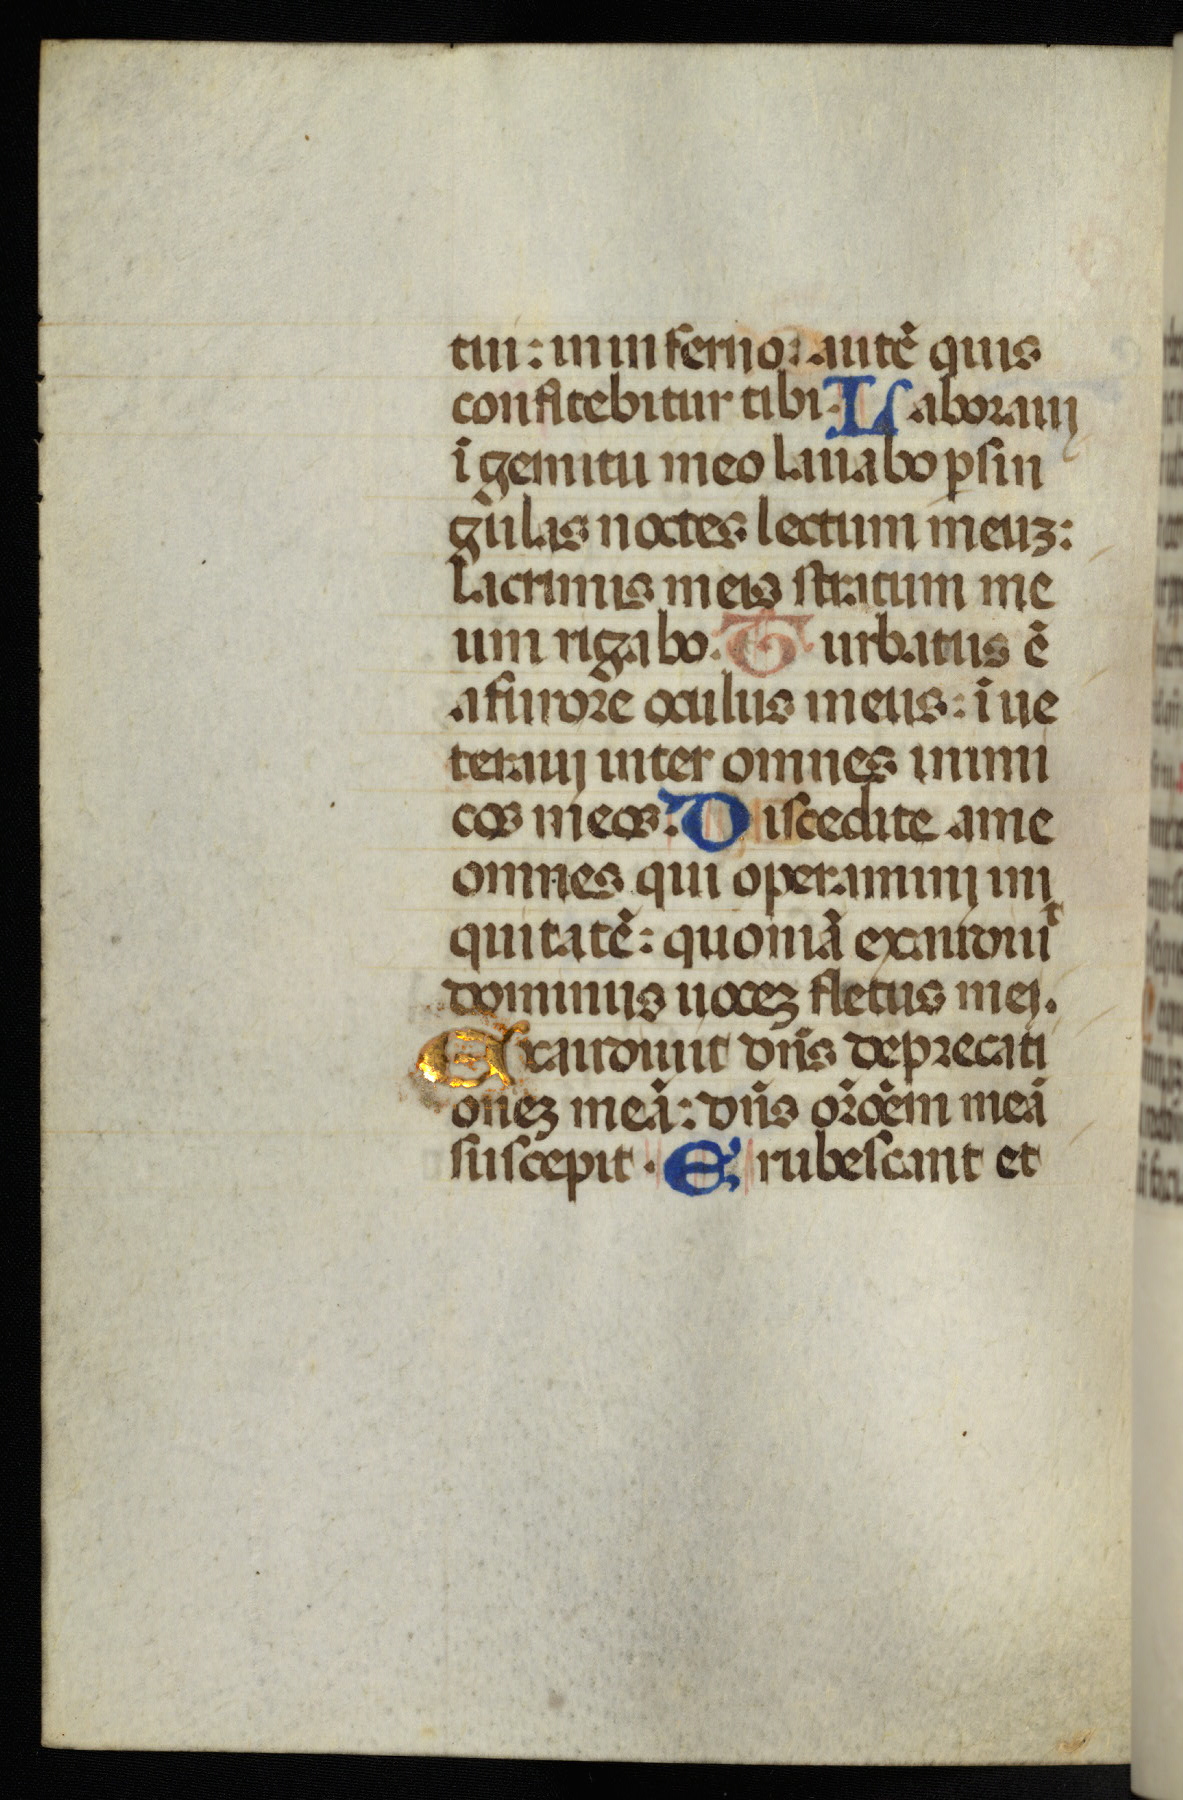 tui: in inferno autē quis
confitebitur tibi. Laboraui
ī gemitu meo lauabo p sin
gulas noctes lectum meuz:
lacrimis meis stratum me
um rigabo. Turbatus ē
a furore oculus meus: īue
teraui inter omnes inimi
cos meos. Discedite a me
omnes qui operamini ini
quitatē: quoniā exaudiuit
dominus uocez fletus mei.
Exaudiuit dn̄s deprecati
onez meā: dn̄s or̄oēm meā
suscepit. Erubescant et